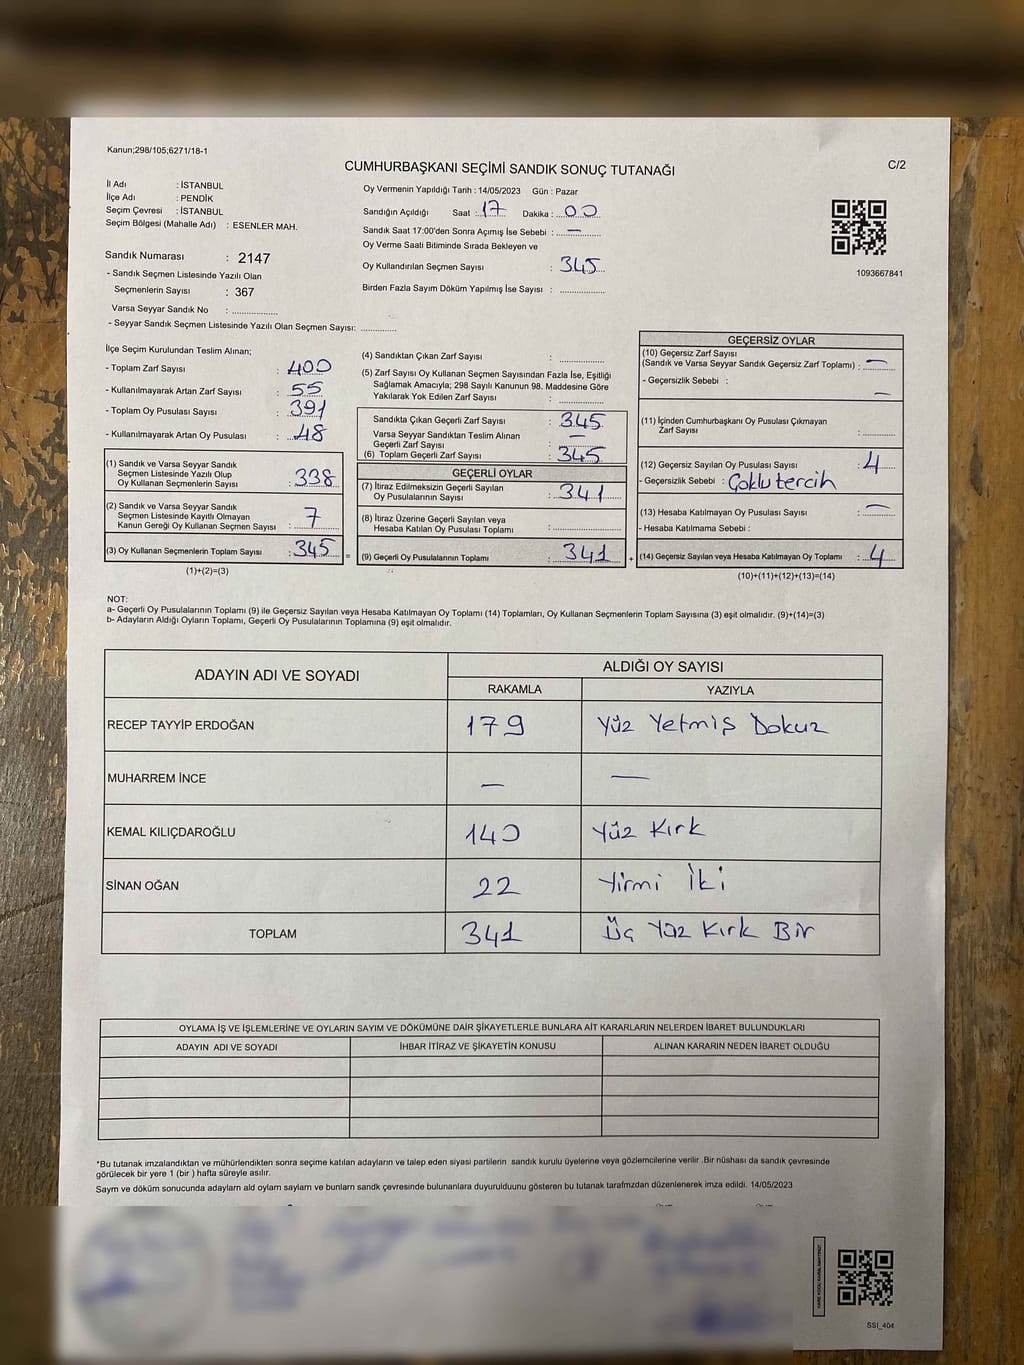 Kanun;298/105;6271/18-1
CUMHURBAŞKANI SEÇİMİ SANDIK SONUÇ TUTANAĞI
C/2
İl Adı : İSTANBUL
İlçe Adı : PENDİK
Seçim Çevresi : İSTANBUL
Seçim Bölgesi (Mahalle Adı) : ESENLER MAH.
Sandık Numarası : 2147
- Sandık Seçmen Listesinde Yazılı Olan
Seçmenlerin Sayısı : 367
Varsa Seyyar Sandık No : ..................
- Seyyar Sandık Seçmen Listesinde Yazılı Olan Seçmen Sayısı: ..............
Oy Vermenin Yapıldığı Tarih : 14/05/2023 Gün : Pazar
Sandığın Açıldığı Saat : 17 Dakika : 00
Sandık Saat 17:00'den Sonra Açımış İse Sebebi : —
Oy Verme Saati Bitiminde Sırada Bekleyen ve
Oy Kullandırılan Seçmen Sayısı : 345
Birden Fazla Sayım Döküm Yapılmış İse Sayısı : ..................
1093667841
İlçe Seçim Kurulundan Teslim Alınan;
- Toplam Zarf Sayısı : 400
- Kullanılmayarak Artan Zarf Sayısı : 55
- Toplam Oy Pusulası Sayısı : 391
- Kullanılmayarak Artan Oy Pusulası : 48
(1) Sandık ve Varsa Seyyar Sandık
Seçmen Listesinde Yazılı Olup
Oy Kullanan Seçmenlerin Sayısı : 338
(2) Sandık ve Varsa Seyyar Sandık
Seçmen Listesinde Kayıtlı Olmayan
Kanun Gereği Oy Kullanan Seçmen Sayısı : 7
(3) Oy Kullanan Seçmenlerin Toplam Sayısı : 345
(1)+(2)=(3)
(4) Sandıktan Çıkan Zarf Sayısı : ..............
(5) Zarf Sayısı Oy Kullanan Seçmen Sayısından Fazla İse, Eşitliği
Sağlamak Amacıyla; 298 Sayılı Kanunun 98. Maddesine Göre
Yakılarak Yok Edilen Zarf Sayısı : ..............
Sandıkta Çıkan Geçerli Zarf Sayısı : 345
Varsa Seyyar Sandıktan Teslim Alınan
Geçerli Zarf Sayısı : —
(6) Toplam Geçerli Zarf Sayısı : 345
GEÇERLİ OYLAR
(7) İtiraz Edilmeksizin Geçerli Sayılan
Oy Pusulalarının Sayısı : 341
(8) İtiraz Üzerine Geçerli Sayılan veya
Hesaba Katılan Oy Pusulası Toplamı : ..................
= (9) Geçerli Oy Pusulalarının Toplamı : 341
GEÇERSİZ OYLAR
(10) Geçersiz Zarf Sayısı
(Sandık ve Varsa Seyyar Sandık Geçersiz Zarf Toplamı) : —
- Geçersizlik Sebebi : —
(11) İçinden Cumhurbaşkanı Oy Pusulası Çıkmayan
Zarf Sayısı : ..........
(12) Geçersiz Sayılan Oy Pusulası Sayısı : 4
- Geçersizlik Sebebi : Çoklu tercih
(13) Hesaba Katılmayan Oy Pusulası Sayısı : —
- Hesaba Katılmama Sebebi :
+ (14) Geçersiz Sayılan veya Hesaba Katılmayan Oy Toplamı : 4
(10)+(11)+(12)+(13)=(14)
NOT:
a- Geçerli Oy Pusulalarının Toplamı (9) ile Geçersiz Sayılan veya Hesaba Katılmayan Oy Toplamı (14) Toplamları, Oy Kullanan Seçmenlerin Toplam Sayısına (3) eşit olmalıdır. (9)+(14)=(3)
b- Adayların Aldığı Oyların Toplamı, Geçerli Oy Pusulalarının Toplamına (9) eşit olmalıdır.
ADAYIN ADI VE SOYADI ALDIĞI OY SAYISI
RAKAMLA YAZIYLA
RECEP TAYYİP ERDOĞAN 179 Yüz Yetmiş Dokuz
MUHARREM İNCE — —
KEMAL KILIÇDAROĞLU 140 Yüz Kırk
SİNAN OĞAN 22 Yirmi İki
TOPLAM 341 Üç Yüz Kırk Bir
OYLAMA İŞ VE İŞLEMLERİNE VE OYLARIN SAYIM VE DÖKÜMÜNE DAİR ŞİKAYETLERLE BUNLARA AİT KARARLARIN NELERDEN İBARET BULUNDUKLARI
ADAYIN ADI VE SOYADI İHBAR İTİRAZ VE ŞİKAYETİN KONUSU ALINAN KARARIN NEDEN İBARET OLDUĞU
*Bu tutanak imzalandıktan ve mühürlendikten sonra seçime katılan adayların ve talep eden siyasi partilerin sandık kurulu üyelerine veya gözlemcilerine verilir .Bir nüshası da sandık çevresinde
görülecek bir yere 1 (bir ) hafta süreyle asılır.
Sayım ve döküm sonucunda adayların ald oyların sayların ve bunların sandk çevresinde bulunanlara duyurulduunu gösteren bu tutanak tarafmzdan düzenlenerek imza edildi. 14/05/2023
SSI_404